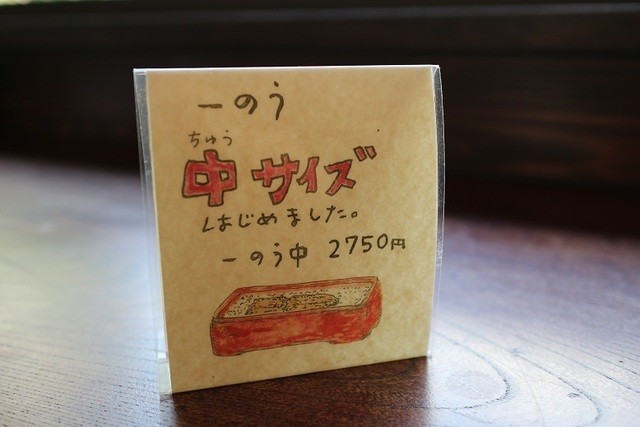 一のう
ちゅう
中サイズ
はじめました。
一のう中 2750円